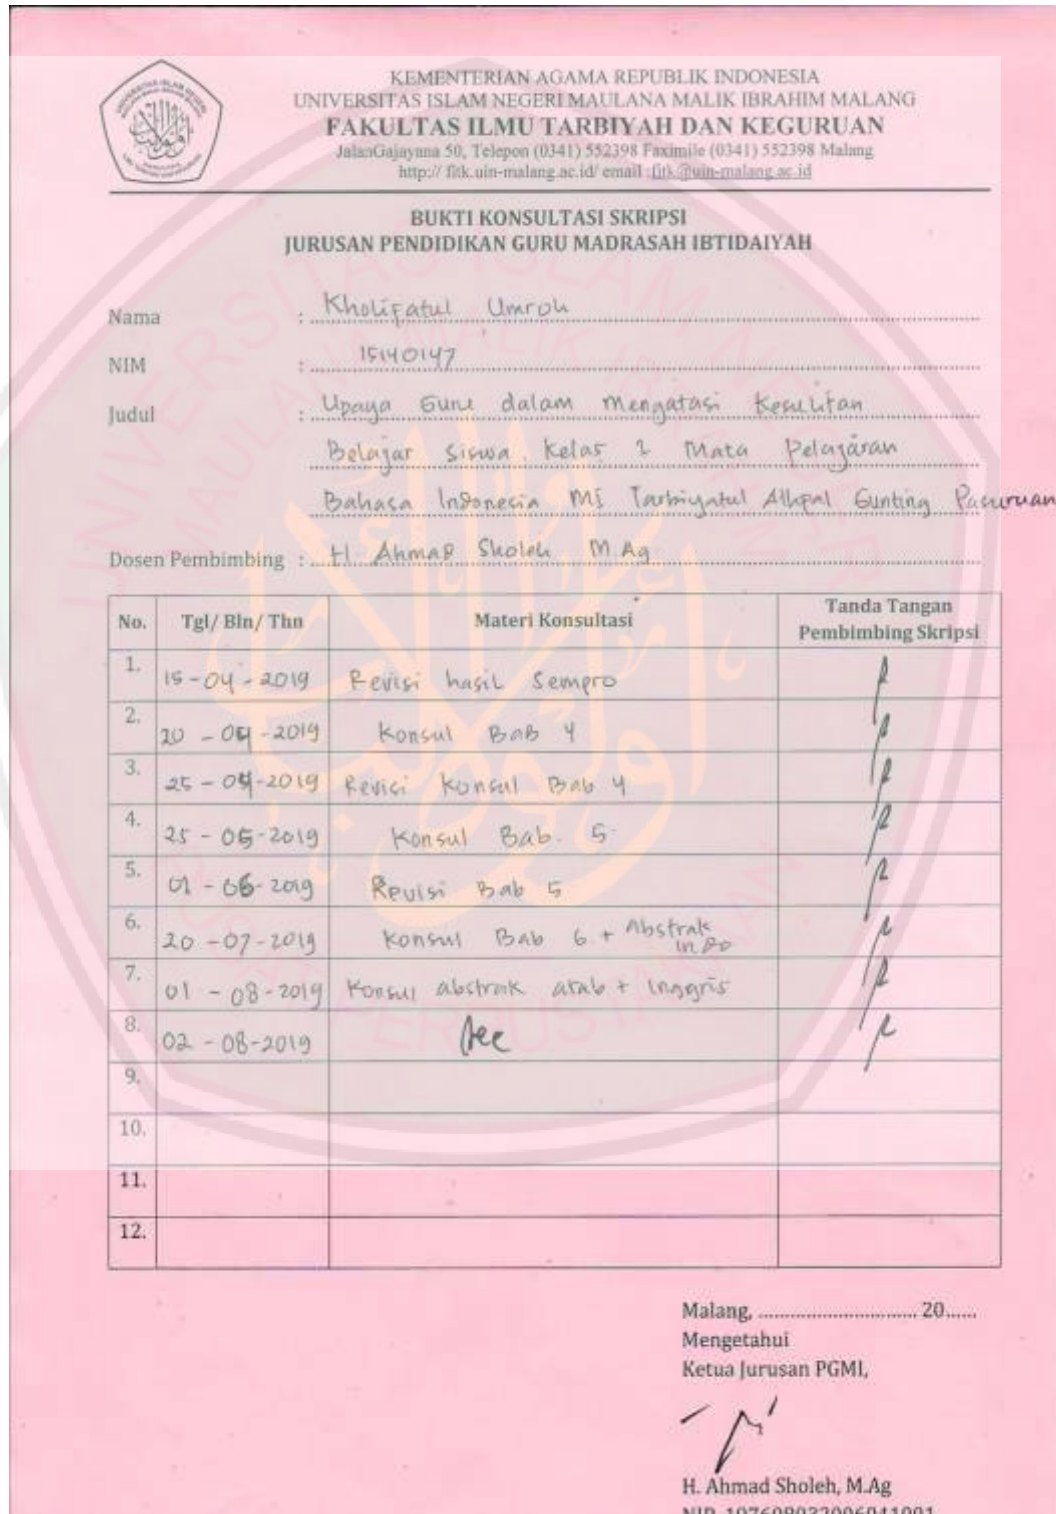 KEMENTERIAN AGAMA REPUBLIK INDONESIA
UNIVERSITAS ISLAM NEGERI MAULANA MALIK IBRAHIM MALANG
FAKULTAS ILMU TARBIYAH DAN KEGURUAN
JalanGajayana 50, Telepon (0341) 552398 Faximile (0341) 552398 Malang
http:// fitk.uin-malang.ac.id/ email :fitk@uin-malang.ac.id
BUKTI KONSULTASI SKRIPSI
JURUSAN PENDIDIKAN GURU MADRASAH IBTIDAIYAH
Nama : Kholifatul Umroh
NIM : 15140147
Judul : Upaya Guru dalam Mengatasi Kesulitan
Belajar Siswa Kelas 2 Mata Pelajaran
Bahasa Indonesia MI Tarbiyatul Gunting Pasuruan
Dosen Pembimbing : H. Ahmad Sholeh M.Ag
No. Tgl/ Bln/ Thn Materi Konsultasi Tanda Tangan
Pembimbing Skripsi
1. 15-04-2019 Revisi hasil Sempro
2. 20-04-2019 Konsul Bab 4
3. 25-04-2019 Revisi Konsul Bab 4
4. 25-05-2019 Konsul Bab. 5
5. 01-06-2019 Revisi Bab 5
6. 20-07-2019 Konsul Bab 6 + Abstrak
Indo
7. 01-08-2019 Konsul abstrak arab + Inggris
8. 02-08-2019 Acc
9.
10.
11.
12.
Malang, ................................ 20......
Mengetahui
Ketua Jurusan PGMI,
H. Ahmad Sholeh, M.Ag